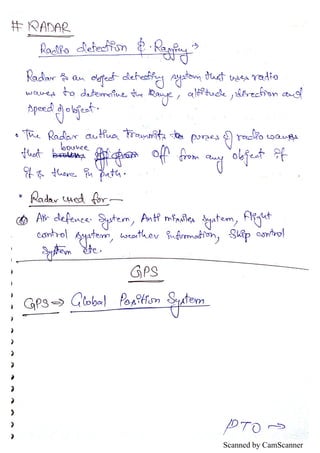 # RADAR
Radio detection & Ragging →
Radar is an object detecting system that uses radio
waves to determine the Range, altitude, direction and
speed of object.
• The Radar antina Transmits purses of radio waves
that bounce off from any object if
it is there in path.
* Radar used for —
Air defence System, Anti missiles system, Flight
control system, weather information, Ship control
System etc.
GPS
GPS ⇒ Global Position System
PTO →
Scanned by CamScanner